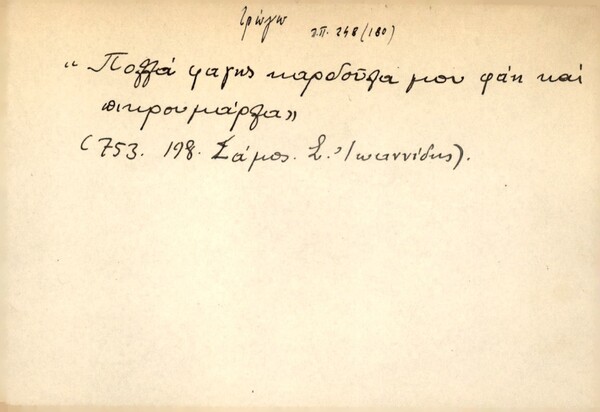 τρώγω
π.π. 248 (180)
"Πολλά φαγης καρδούλα μου φάη καί
πικρουμάρλα»
(753. 198. Σάμος. Σ. Ἰωαννίδης).